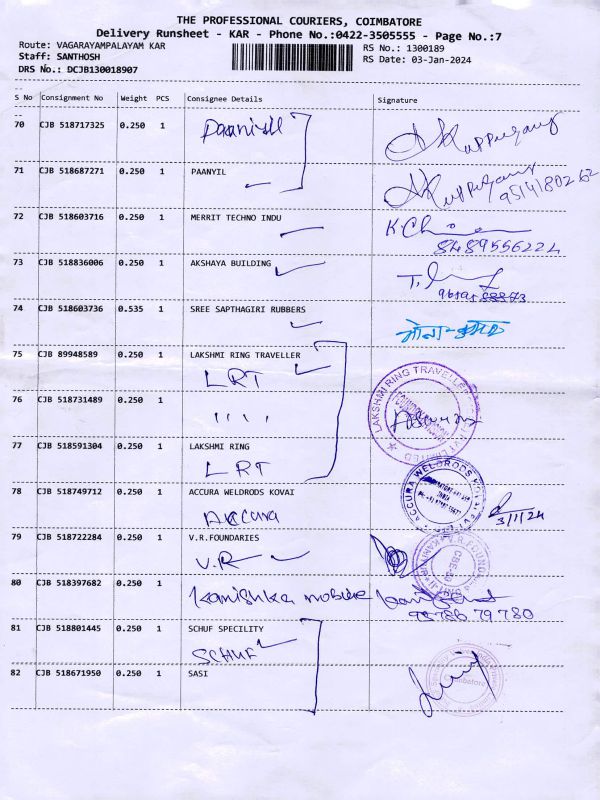 THE PROFESSIONAL COURIERS, COIMBATORE
Delivery Runsheet - KAR - Phone No.:0422-3505555 - Page No.:7
Route: VAGARAYAMPALAYAM KAR
RS No.: 1300189
Staff: SANTHOSH
RS Date: 03-Jan-2024
DRS No.: DCJB130018907
S No Consignment No Weight PCS Consignee Details Signature
70 CJB 518717325 0.250 1 Paaniyil
71 CJB 518687271 0.250 1 PAANYIL
9514180262
72 CJB 518603716 0.250 1 MERRIT TECHNO INDU
8489556224
73 CJB 518836006 0.250 1 AKSHAYA BUILDING
74 CJB 518603736 0.535 1 SREE SAPTHAGIRI RUBBERS
75 CJB 89948589 0.250 1 LAKSHMI RING TRAVELLER
LRT
76 CJB 518731489 0.250 1
LAKSHMI RING TRAVELLER
77 CJB 518591304 0.250 1 LAKSHMI RING
LRT
78 CJB 518749712 0.250 1 ACCURA WELDRODS KOVAI
Accura
ACCURA WELDRODS KOVAI
3/1/24
79 CJB 518722284 0.250 1 V.R.FOUNDARIES
V.R
80 CJB 518397682 0.250 1 Kanishka mobile
95788 79780
81 CJB 518801445 0.250 1 SCHUF SPECILITY
SCHUF
82 CJB 518671950 0.250 1 SASI